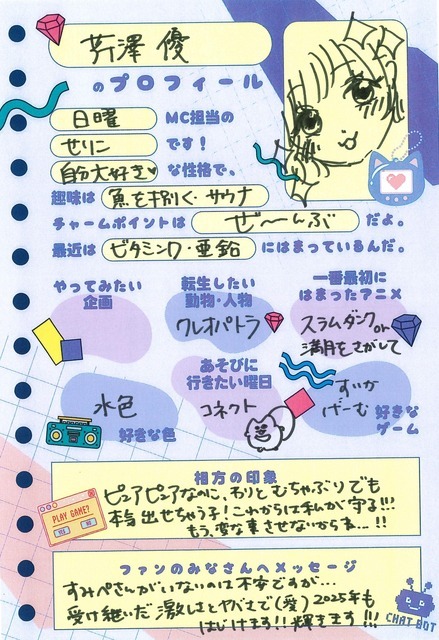 芹澤 優
のプロフィール
日曜 MC担当の
せりこ です！
自分大好き♥ な性格で、
趣味は 魚を捌く・サウナ
チャームポイントは ぜ〜んぶ だよ。
最近は ビタミンC・亜鉛 にはまっているんだ。
やってみたい
企画
転生したい
動物・人物
クレオパトラ
一番最初に
はまったアニメ
スラムダンク or
満月をさがして
水色
好きな色
あそびに
行きたい曜日
コネクト
すいか
げーむ
好きな
ゲーム
相方の印象
ピュアピュアなのに、わりとむちゃぶりでも
本気出せちゃう子！これからは私が守る!!!
もう、変な事させないからね…!!
PLAY GAME?
ファンのみなさんへメッセージ
すみぺさんがいないのは不安ですが…
受け継いだ激しさとヤバさで(愛)2025年も
はじけます!!輝きます!!!
CHAT BOT